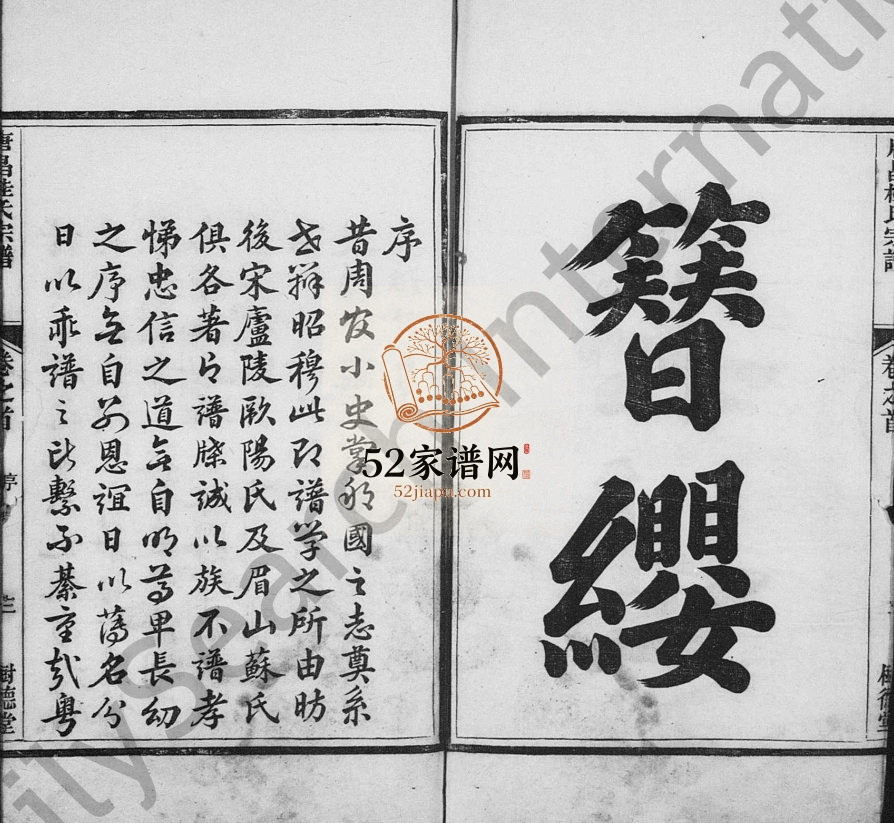 簪纓
序
昔周官小史掌邦國之志奠系
世辨昭穆此即譜學之所由昉
後宋廬陵歐陽氏及眉山蘇氏
俱各著有譜牒誠以族不譜孝
悌忠信之道無自明尊卑長幼
之序無自別恩誼日以薄名分
日以乖譜之所繫不綦重哉粵
唐昌桂氏宗譜
卷之首
序
樹德堂
52家谱网
52jiapu.com